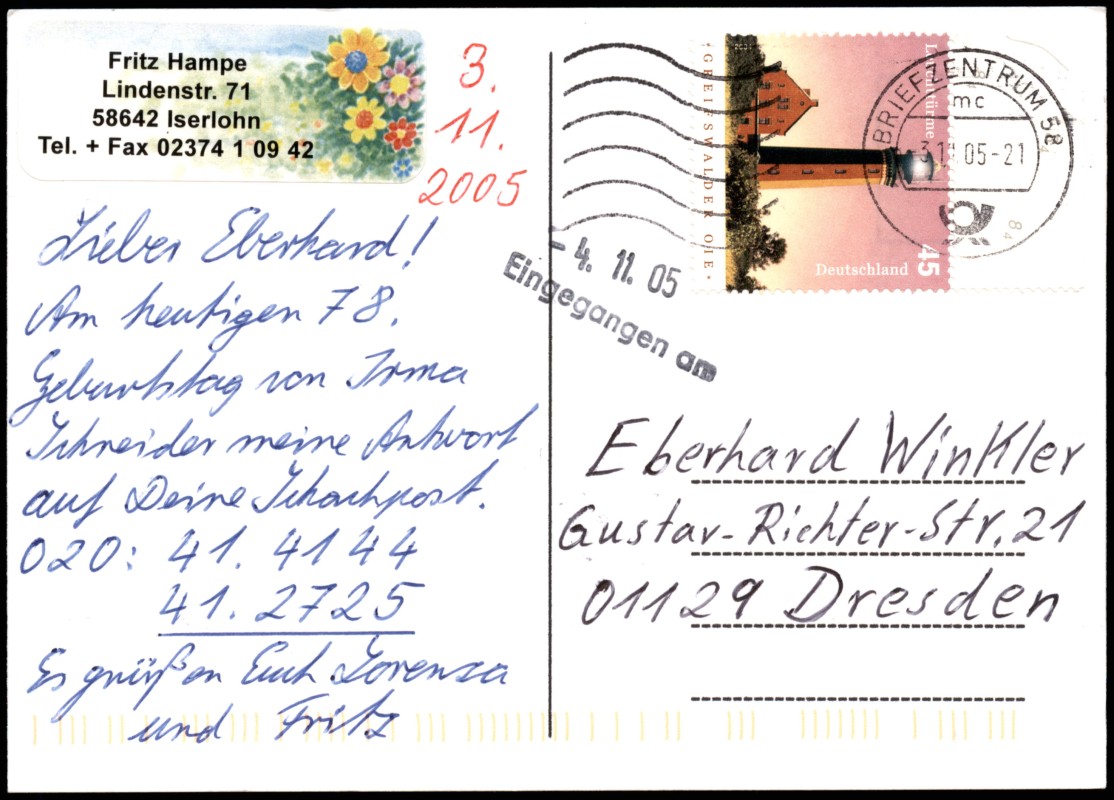 Fritz Hampe
Lindenstr. 71
58642 Iserlohn
Tel. + Fax 02374 1 09 42
3.
11.
2005
Lieber Eberhard!
Am heutigen 78.
Geburtstag von Irma
Schneider meine Antwort
auf Deine Schachpost.
020: 41. 41 44
41. 2725
Es grüßen Euch Lorenza
und Fritz
· GREIFSWALDER OIE ·
Leuchttürme
Deutschland
45
BRIEFZENTRUM 58
mc
3.11.05-21
84
- 4. 11. 05
Eingegangen am
Eberhard Winkler
Gustav-Richter-Str. 21
01129 Dresden